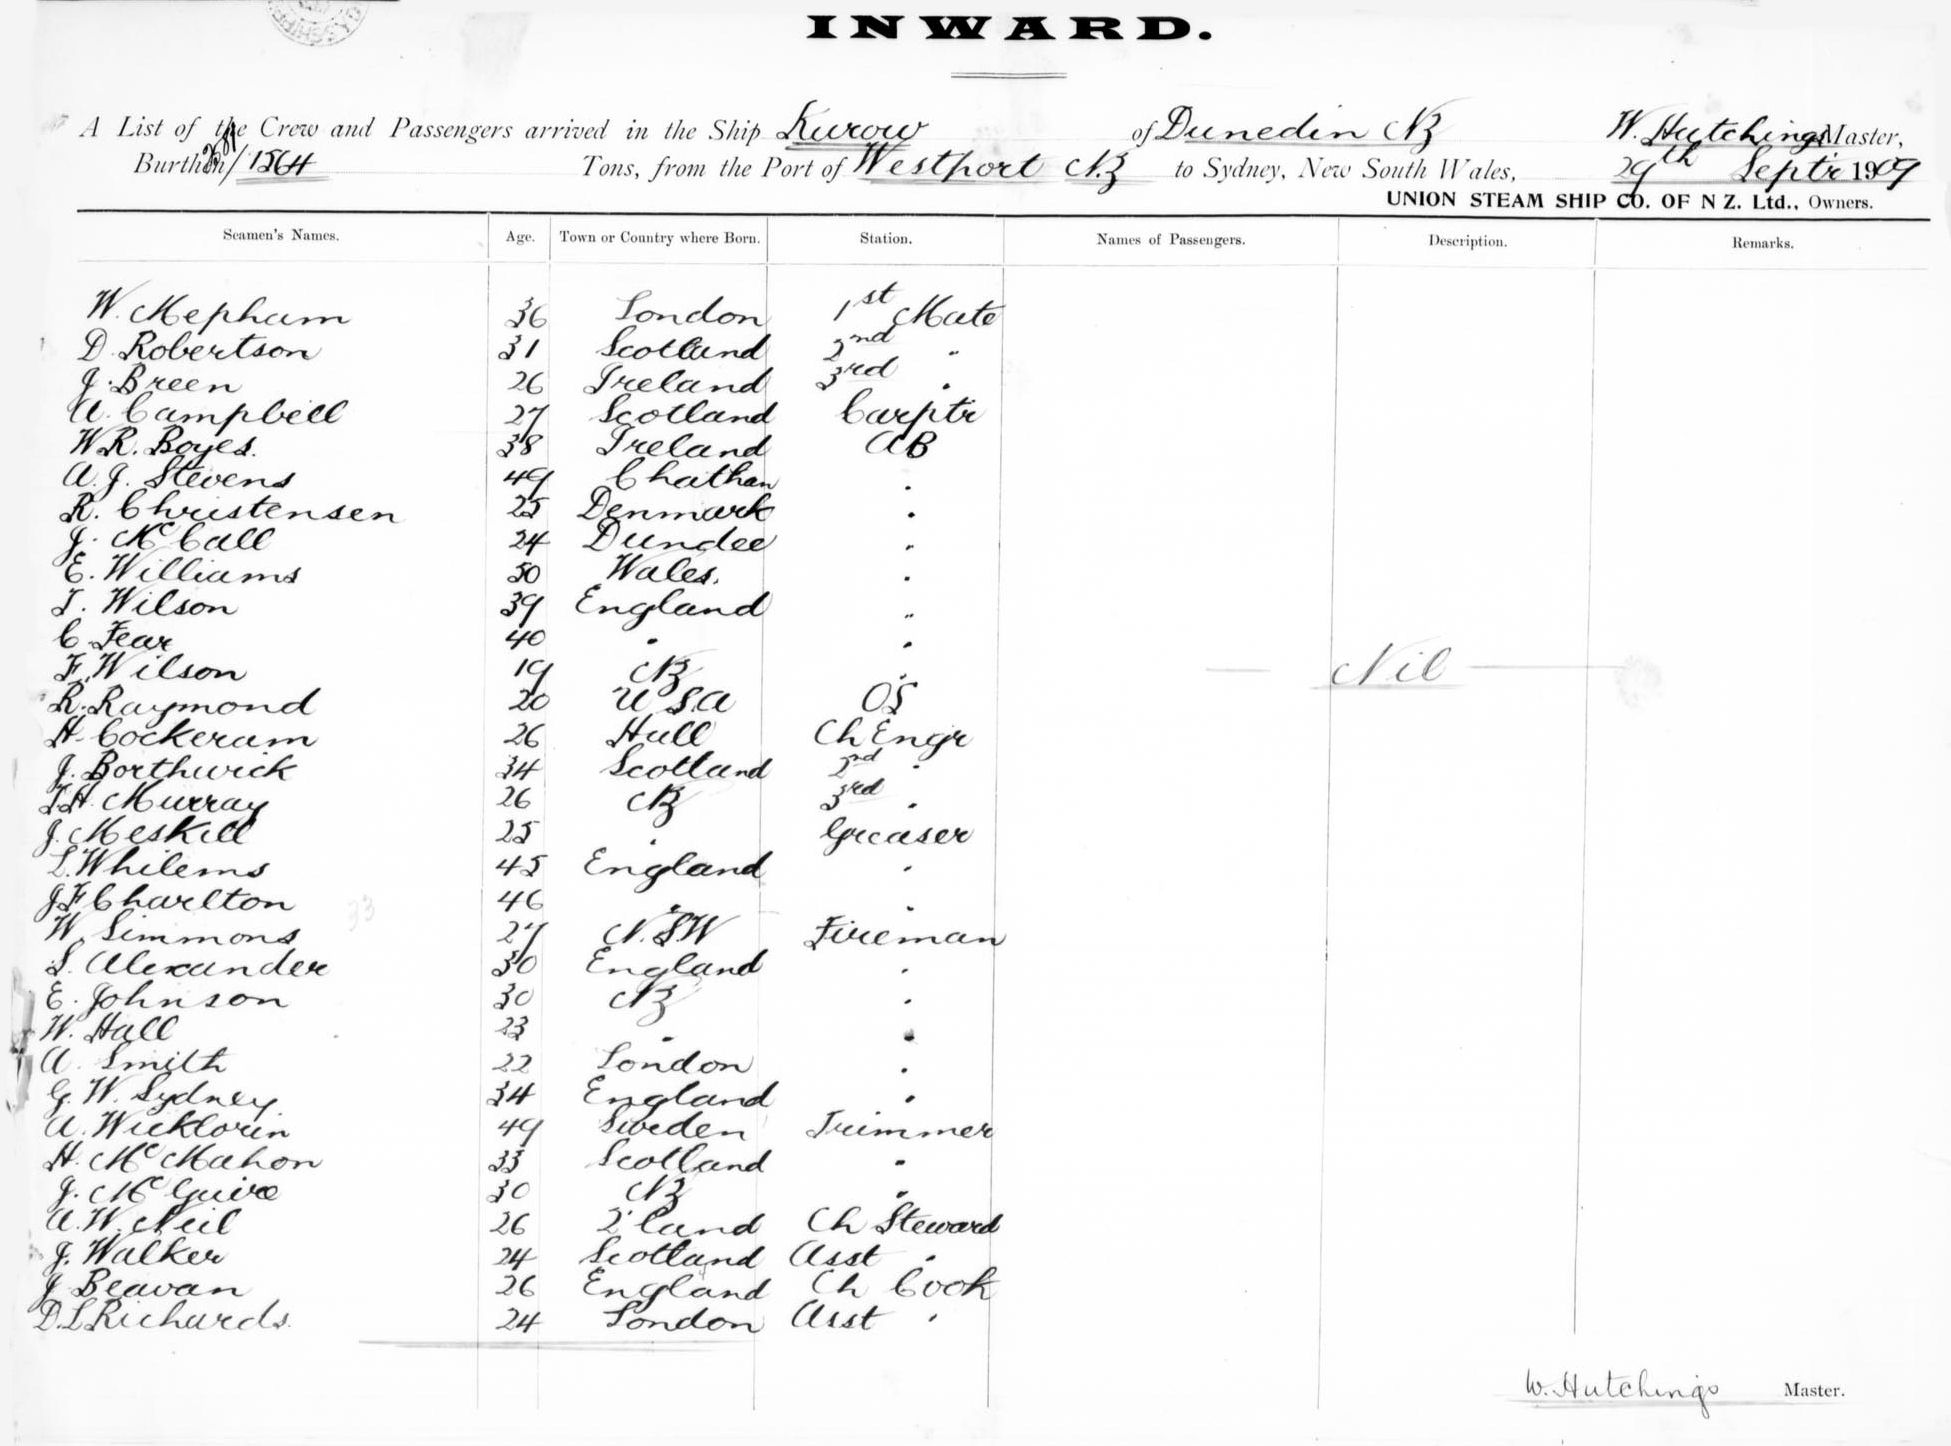 INWARD.
A List of the Crew and Passengers arrived in the Ship Kurow of Dunedin NZ W. Hutchings Master,
Burthen /1564 Tons, from the Port of Westport N.Z to Sydney, New South Wales, 29th Septr 1909
UNION STEAM SHIP CO. OF N Z. Ltd., Owners.
Seamen's Names. Age. Town or Country where Born. Station. Names of Passengers. Description. Remarks.
W. Mepham 36 London 1st Mate
D. Robertson 31 Scotland 2nd "
J. Breen 26 Ireland 3rd "
A. Campbell 27 Scotland Carptr
W.R. Boyes. 38 Ireland AB
A. J. Stevens 49 Chatham "
R. Christensen 25 Denmark "
J. McCall 24 Dundee "
E. Williams 50 Wales. "
T. Wilson 39 England "
C. Fear 40 " "
F. Wilson 19 NZ "
Nil
R. Raymond 20 U S.A OS
H. Cockeram 26 Hull Ch Engr
J. Borthwick 34 Scotland 2nd "
T.H. Murray 26 NZ 3rd "
J. Meskill 25 " Greaser
L. Whilems 45 England "
J F Charlton 46 " "
33
W. Simmons 27 N.S.W Fireman
S. Alexander 30 England "
E. Johnson 30 NZ "
W. Hall 23 " "
A. Smith 22 London "
G. W. Sydney. 34 England "
A. Wicklorin 49 Sweden Trimmer
H. McMahon 33 Scotland "
J. McGuire 30 NZ "
A. W. Neil 26 Q'land Ch Steward
J. Walker 24 Scotland Asst "
J Beavan 26 England Ch Cook
D. L Richards. 24 London Asst "
W. Hutchings Master.